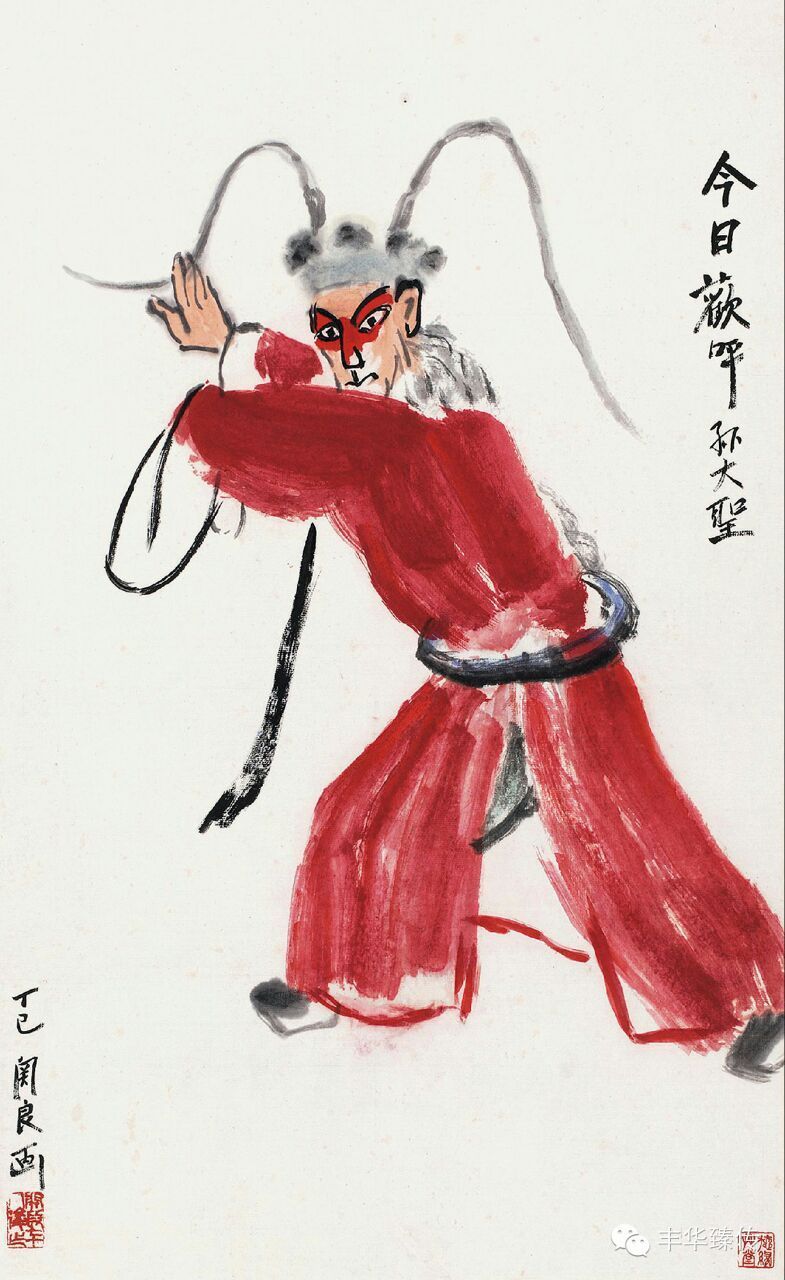 今日歡呼孫大聖
丁巳 関良画
丰华臻